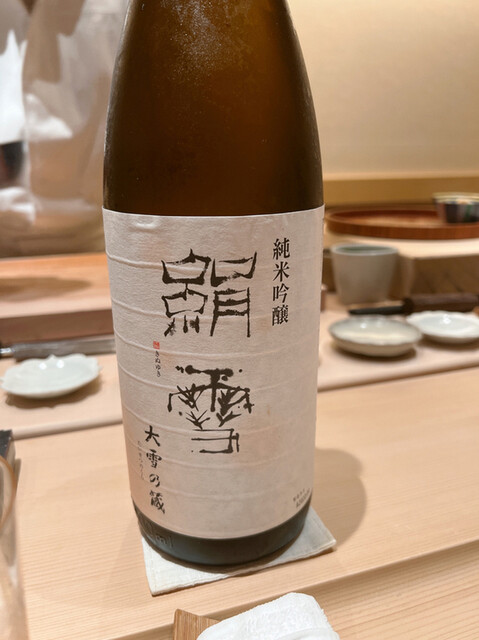 純米吟醸
絹雪
きぬゆき
大雪の蔵